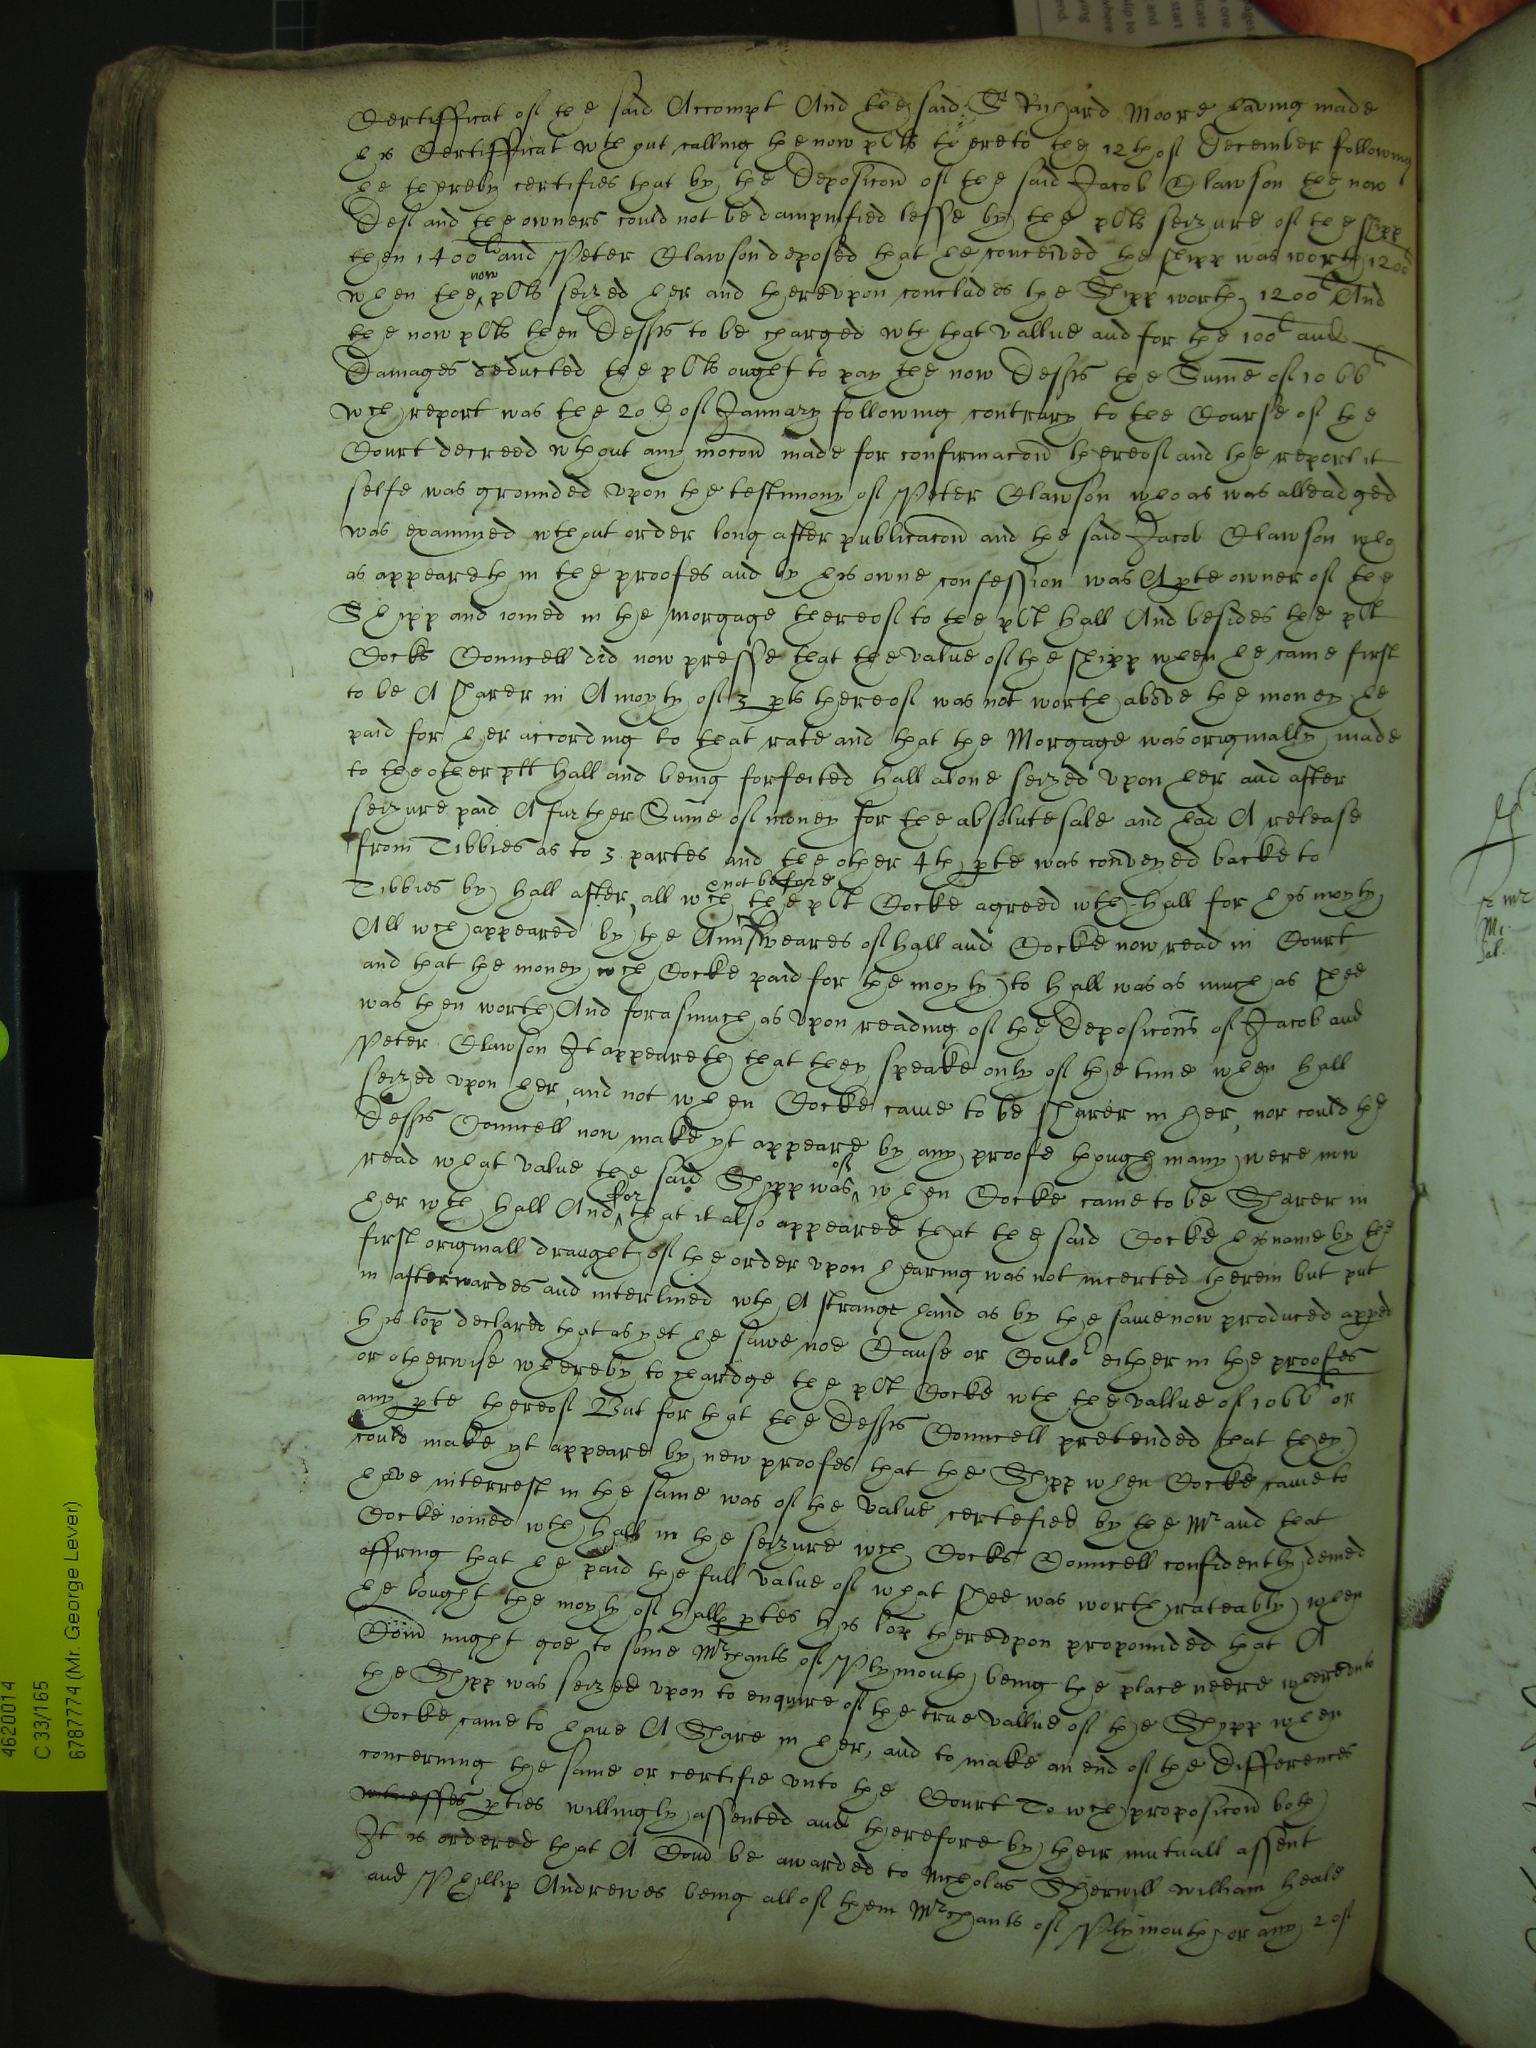 Certifficat of the said Accompt And the said Sr Richard Moore having made
his Certifficat wthout calling the now plts thereto the 12th of December following
he thereby certifies that by the Deposicon of the said Jacob Clawson the now
Deft and the owners could not be dampnified lesse by the plts seizure of the shipp
then 1400l and Peter Clawson deposed that he conceived the shipp was worth 1200l
when the now plts seized her and therevpon concludes the Shipp worth 1200l And
the now plts then Defts to be charged wth that vallue and for the 100l and
Damages deducted the plts ought to pay the now Defts the Sume of 1066l
wch report was the 20th of January following contrary to the Course of the
Court decreed wthout any mocon made for confirmacon thereof and the report it
selfe was grounded vpon the testimony of Peter Clawson who as was alleadged
was examined wthout order long after publicacon and the said Jacob Clawson who
as appeareth in the proofes and by his owne confession was A pte owner of the
Shipp and ioined in the morgage thereof to the plt Hall And besides the plt
Cocks Councell did now presse that the value of the shipp when he came first
to be A sharer in A moyty of 3 pts thereof was not worth above the money he
paid for her according to that rate and that the Morgage was originally made
to the other plt Hall and being forfeited Hall alone seized vpon her and after
seizure paid A further Sume of money for the absolute sale and had A release
from Tibbies as to 3 partes and the other 4th pte was conveyed backe to
Tibbies by Hall after all wch & not before the plt Cocke agreed wth Hall for his moyty
All wch appeared by the Answeares of Hall and Cocke now read in Court
and that the money wch Cocke paid for the moyty to Hall was as much as shee
was then worth And forasmuch as vpon reading of the Deposicons of Jacob and
Peter Clawson It appeareth that they speake only of the time when Hall
seized vpon her and not when Cocke came to be sharer in her, nor could the
Defts Councell now make yt appeare by any proofe though many were now
read what value the said Shipp was of when Cocke came to be Sharer in
her wth Hall And for that it also appeared that the said Cocke his name by the
first originall draught of the order vpon hearing was not incerted therein but put
in afterwardes and interlined wth A strange hand as by the same now produced apped
His lop declared that as yet he sawe noe Cause or Could either in the proofes
or otherwise whereby to chardge the plt Cocke wth the vallue of 1066l or
any pte thereof But for that the Defts Councell pretended that they
could make yt appeare by new proofes that the Shipp when Cocke came to
have interrest in the same was of the value certefied by the Mr and that
Cocke ioined wth Hall in the seizure wch Cocks Councell confidently denied
affring that he paid the full value of what shee was worth rateably when
he bought the moyty of Halls ptes his lop therevpon propounded that A
Comn might goe to some Mrchants of Plymouth being the place neere wherevnto
the Shipp was seized vpon to enquire of the true vallue of the Shypp when
Cocke came to haue A Share in her, and to make an end of the differences
concerning the same or certifie vnto the Court To wch proposicon both
witnesses pties willingly assented and therefore by their mutuall assent
It is ordered that A Comn be awarded to Nicholas Sherwill William Heale
and Phillip Andrewes being all of them Mrchants of Plymouth or any 2 of
4620014
C 33/165
6787774 (Mr. George Lever)